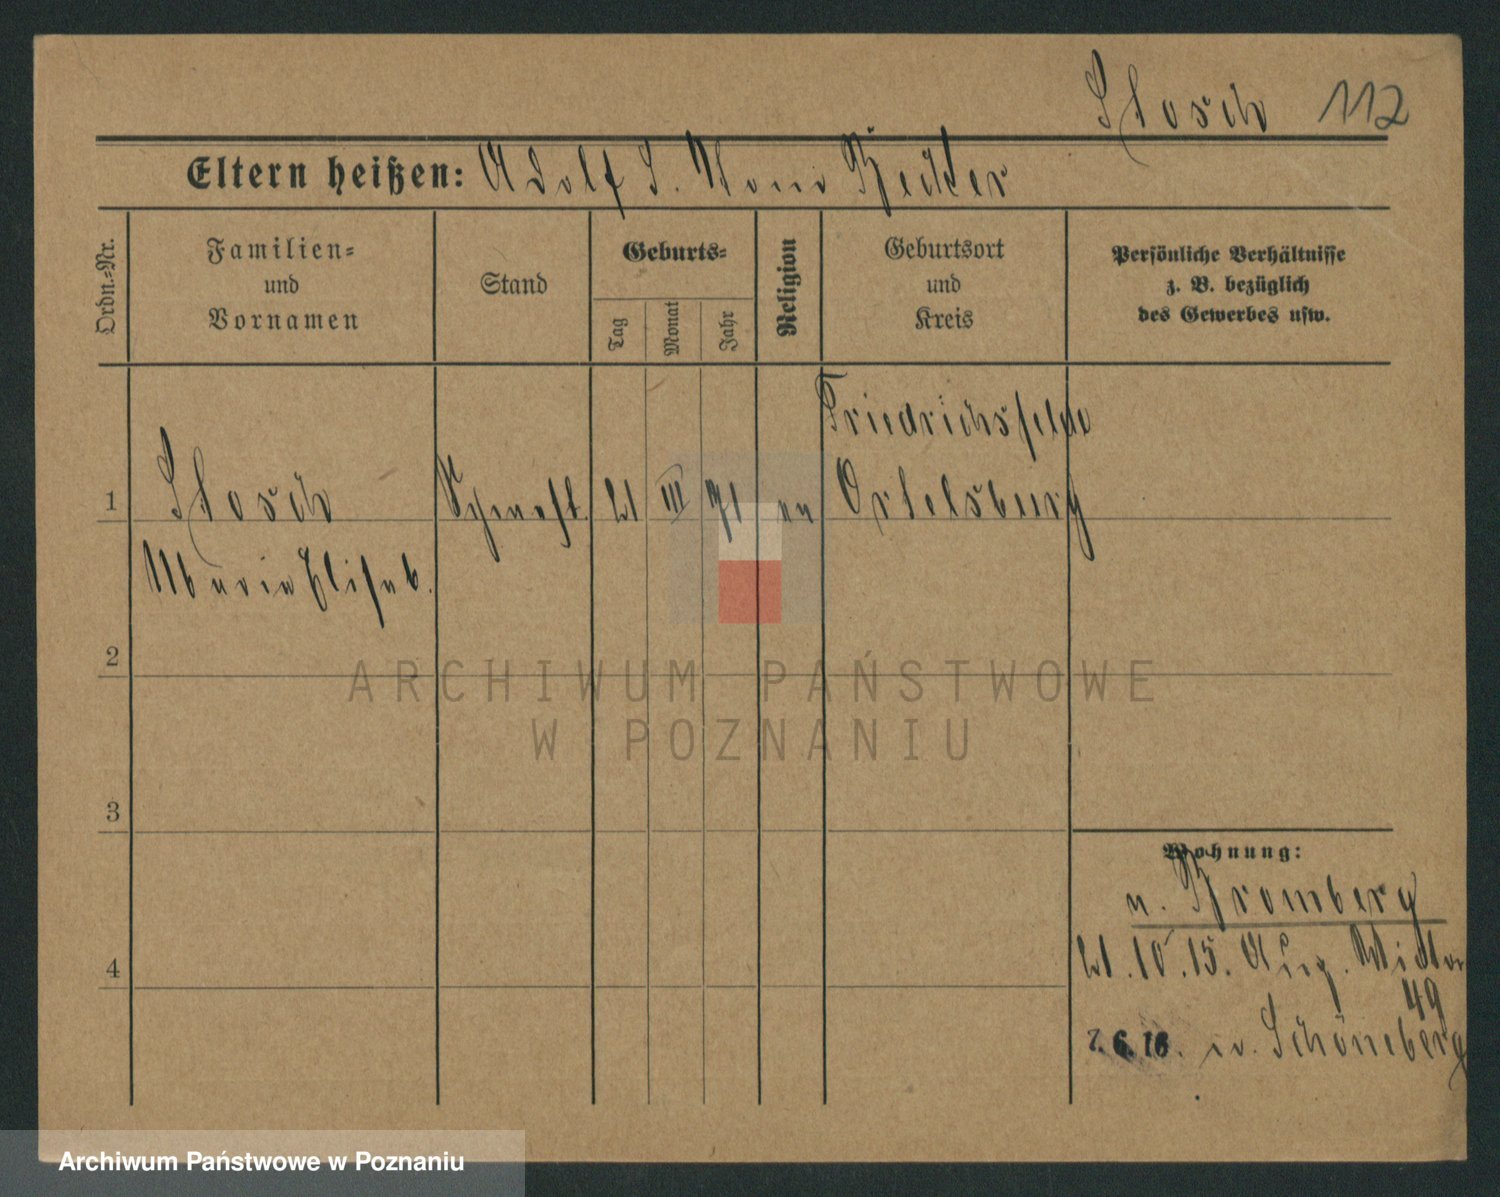 Stosch 112
Eltern heißen: Adolf S. Becker
Ordn.-Nr.
Familien=
und
Vornamen
Stand
Geburts=
Tag
Monat
Jahr
Religion
Geburtsort
und
Kreis
Persönliche Verhältnisse
z. B. bezüglich
des Gewerbes usw.
Friedrichsfelde
1 Stosch 21 III 71 Ortelsburg
Maria Elisab.
2
ARCHIWUM PAŃSTWOWE
W POZNANIU
3
Wohnung:
n. Bromberg
21.10.15. Aug.
49
7.6.16. Schöneberg
4
Archiwum Państwowe w Poznaniu